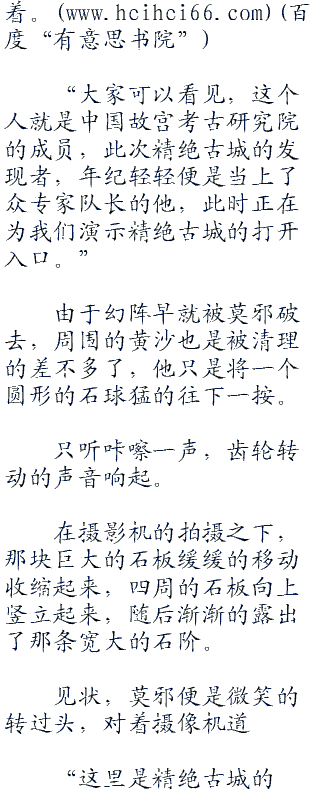 着。(www.hcihci66.com)(百
度“有意思书院”)
“大家可以看见，这个
人就是中国故宫考古研究院
的成员，此次精绝古城的发
现者，年纪轻轻便是当上了
众专家队长的他，此时正在
为我们演示精绝古城的打开
入口。”
由于幻阵早就被莫邪破
去，周围的黄沙也是被清理
的差不多了，他只是将一个
圆形的石球猛的往下一按。
只听咔嚓一声，齿轮转
动的声音响起。
在摄影机的拍摄之下，
那块巨大的石板缓缓的移动
收缩起来，四周的石板向上
竖立起来，随后渐渐的露出
了那条宽大的石阶。
见状，莫邪便是微笑的
转过头，对着摄像机道
“这里是精绝古城的